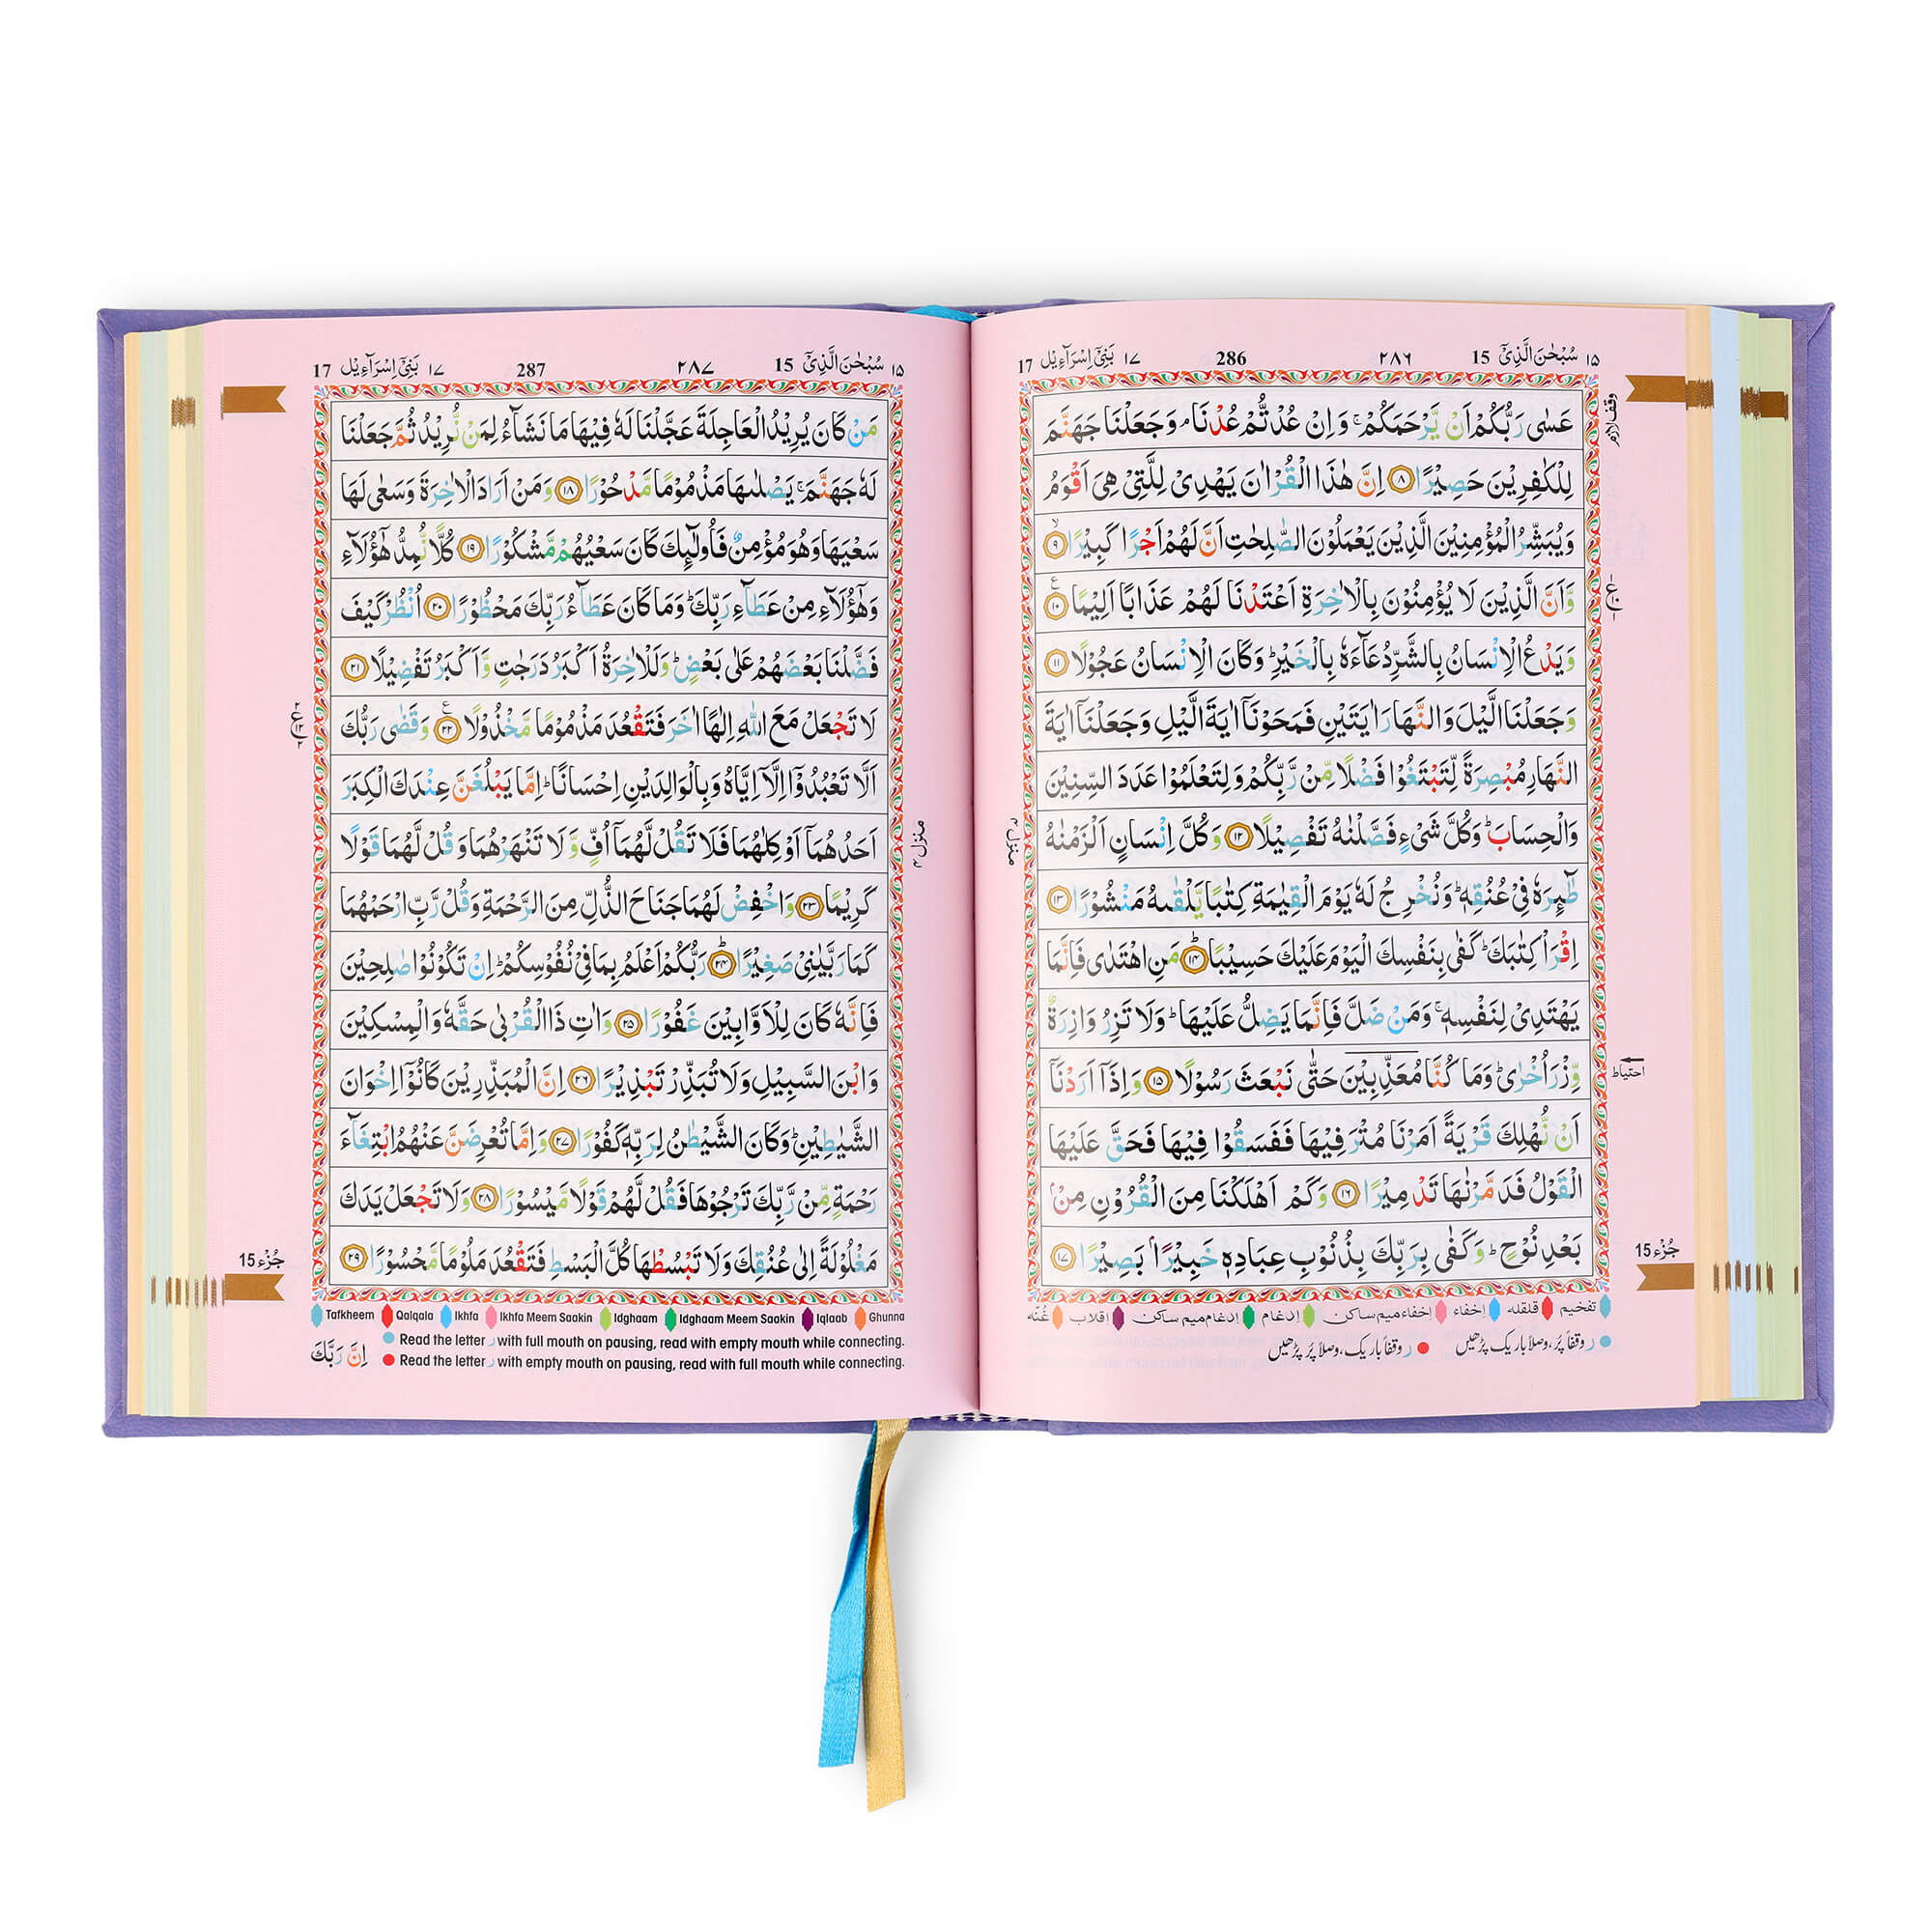 ١٥ سُبْحٰنَ الَّذِیْۤ 15 ٢٨٦ 286 ١٧ بَنِیْۤ اِسْرَآءِیْل 17
عَسٰی رَبُّكُمْ اَنْ یَّرْحَمَكُمْ ۚ وَ اِنْ عُدْتُّمْ عُدْنَا ۘ وَ جَعَلْنَا جَهَنَّمَ
لِلْكٰفِرِیْنَ حَصِیْرًا ﴿٨﴾ اِنَّ هٰذَا الْقُرْاٰنَ یَهْدِیْ لِلَّتِیْ هِیَ اَقْوَمُ
وَ یُبَشِّرُ الْمُؤْمِنِیْنَ الَّذِیْنَ یَعْمَلُوْنَ الصّٰلِحٰتِ اَنَّ لَهُمْ اَجْرًا كَبِیْرًا ﴿٩﴾ ۙ
وَّ اَنَّ الَّذِیْنَ لَا یُؤْمِنُوْنَ بِالْاٰخِرَةِ اَعْتَدْنَا لَهُمْ عَذَابًا اَلِیْمًا ﴿١٠﴾ ع
وَ یَدْعُ الْاِنْسَانُ بِالشَّرِّ دُعَآءَهٗ بِالْخَیْرِ ؕ وَ كَانَ الْاِنْسَانُ عَجُوْلًا ﴿١١﴾
وَ جَعَلْنَا الَّیْلَ وَ النَّهَارَ اٰیَتَیْنِ فَمَحَوْنَاۤ اٰیَةَ الَّیْلِ وَ جَعَلْنَاۤ اٰیَةَ
النَّهَارِ مُبْصِرَةً لِّتَبْتَغُوْا فَضْلًا مِّنْ رَّبِّكُمْ وَ لِتَعْلَمُوْا عَدَدَ السِّنِیْنَ
وَ الْحِسَابَ ؕ وَ كُلَّ شَیْءٍ فَصَّلْنٰهُ تَفْصِیْلًا ﴿١٢﴾ وَ كُلَّ اِنْسَانٍ اَلْزَمْنٰهُ
طٰٓئِرَهٗ فِیْ عُنُقِهٖ ؕ وَ نُخْرِجُ لَهٗ یَوْمَ الْقِیٰمَةِ كِتٰبًا یَّلْقٰىهُ مَنْشُوْرًا ﴿١٣﴾
اِقْرَاْ كِتٰبَكَ ؕ كَفٰی بِنَفْسِكَ الْیَوْمَ عَلَیْكَ حَسِیْبًا ﴿١٤﴾ ؕ مَنِ اهْتَدٰی فَاِنَّمَا
یَهْتَدِیْ لِنَفْسِهٖ ۚ وَ مَنْ ضَلَّ فَاِنَّمَا یَضِلُّ عَلَیْهَا ؕ وَ لَا تَزِرُ وَازِرَةٌ
وِّزْرَ اُخْرٰی ؕ وَ مَا كُنَّا مُعَذِّبِیْنَ حَتّٰی نَبْعَثَ رَسُوْلًا ﴿١٥﴾ وَ اِذَاۤ اَرَدْنَاۤ
اَنْ نُّهْلِكَ قَرْیَةً اَمَرْنَا مُتْرَفِیْهَا فَفَسَقُوْا فِیْهَا فَحَقَّ عَلَیْهَا
الْقَوْلُ فَدَمَّرْنٰهَا تَدْمِیْرًا ﴿١٦﴾ وَ كَمْ اَهْلَكْنَا مِنَ الْقُرُوْنِ مِنْۢ
بَعْدِ نُوْحٍ ؕ وَ كَفٰی بِرَبِّكَ بِذُنُوْبِ عِبَادِهٖ خَبِیْرًۢا بَصِیْرًا ﴿١٧﴾
وقف لازم
احتیاط
منزل ٤
جُزْء 15
تفخیم قلقله اِخفاء اِخفاء میم ساکن اِدغام اِدغام میم ساکن اقلاب غُنّه
ر وقفاً پُر، وصلاً باریک پڑھیں ر وقفاً باریک، وصلاً پُر پڑھیں
١٥ سُبْحٰنَ الَّذِیْۤ 15 ٢٨٧ 287 ١٧ بَنِیْۤ اِسْرَآءِیْل 17
مَنْ كَانَ یُرِیْدُ الْعَاجِلَةَ عَجَّلْنَا لَهٗ فِیْهَا مَا نَشَآءُ لِمَنْ نُّرِیْدُ ثُمَّ جَعَلْنَا
لَهٗ جَهَنَّمَ ۚ یَصْلٰىهَا مَذْمُوْمًا مَّدْحُوْرًا ﴿١٨﴾ وَ مَنْ اَرَادَ الْاٰخِرَةَ وَ سَعٰی لَهَا
سَعْیَهَا وَ هُوَ مُؤْمِنٌ فَاُولٰٓئِكَ كَانَ سَعْیُهُمْ مَّشْكُوْرًا ﴿١٩﴾ كُلًّا نُّمِدُّ هٰۤؤُلَآءِ
وَ هٰۤؤُلَآءِ مِنْ عَطَآءِ رَبِّكَ ؕ وَ مَا كَانَ عَطَآءُ رَبِّكَ مَحْظُوْرًا ﴿٢٠﴾ اُنْظُرْ كَیْفَ
فَضَّلْنَا بَعْضَهُمْ عَلٰی بَعْضٍ ؕ وَ لَلْاٰخِرَةُ اَكْبَرُ دَرَجٰتٍ وَّ اَكْبَرُ تَفْضِیْلًا ﴿٢١﴾
لَا تَجْعَلْ مَعَ اللّٰهِ اِلٰهًا اٰخَرَ فَتَقْعُدَ مَذْمُوْمًا مَّخْذُوْلًا ﴿٢٢﴾ ع وَ قَضٰی رَبُّكَ
اَلَّا تَعْبُدُوْۤا اِلَّاۤ اِیَّاهُ وَ بِالْوَالِدَیْنِ اِحْسَانًا ؕ اِمَّا یَبْلُغَنَّ عِنْدَكَ الْكِبَرَ
اَحَدُهُمَاۤ اَوْ كِلٰهُمَا فَلَا تَقُلْ لَّهُمَاۤ اُفٍّ وَّ لَا تَنْهَرْهُمَا وَ قُلْ لَّهُمَا قَوْلًا
كَرِیْمًا ﴿٢٣﴾ وَ اخْفِضْ لَهُمَا جَنَاحَ الذُّلِّ مِنَ الرَّحْمَةِ وَ قُلْ رَّبِّ ارْحَمْهُمَا
كَمَا رَبَّیٰنِیْ صَغِیْرًا ﴿٢٤﴾ ؕ رَبُّكُمْ اَعْلَمُ بِمَا فِیْ نُفُوْسِكُمْ ؕ اِنْ تَكُوْنُوْا صٰلِحِیْنَ
فَاِنَّهٗ كَانَ لِلْاَوَّابِیْنَ غَفُوْرًا ﴿٢٥﴾ وَ اٰتِ ذَا الْقُرْبٰی حَقَّهٗ وَ الْمِسْكِیْنَ
وَ ابْنَ السَّبِیْلِ وَ لَا تُبَذِّرْ تَبْذِیْرًا ﴿٢٦﴾ اِنَّ الْمُبَذِّرِیْنَ كَانُوْۤا اِخْوَانَ
الشَّیٰطِیْنِ ؕ وَ كَانَ الشَّیْطٰنُ لِرَبِّهٖ كَفُوْرًا ﴿٢٧﴾ وَ اِمَّا تُعْرِضَنَّ عَنْهُمُ ابْتِغَآءَ
رَحْمَةٍ مِّنْ رَّبِّكَ تَرْجُوْهَا فَقُلْ لَّهُمْ قَوْلًا مَّیْسُوْرًا ﴿٢٨﴾ وَ لَا تَجْعَلْ یَدَكَ
مَغْلُوْلَةً اِلٰی عُنُقِكَ وَ لَا تَبْسُطْهَا كُلَّ الْبَسْطِ فَتَقْعُدَ مَلُوْمًا مَّحْسُوْرًا ﴿٢٩﴾
منزل ٤
جُزْء 15
Tafkheem Qalqala Ikhfa Ikhfa Meem Saakin Idghaam Idghaam Meem Saakin Iqlaab Ghunna
Read the letter ر with full mouth on pausing, read with empty mouth while connecting.
Read the letter ر with empty mouth on pausing, read with full mouth while connecting.
اِنَّ رَبَّكَ